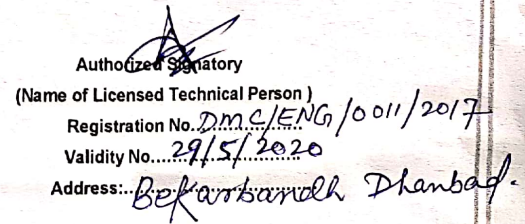 Authorized Signatory
(Name of Licensed Technical Person )
Registration No..DMC/ENG/0011/2017
Validity No....29/5/2020
Address:..Bekarbandh Dhanbad.